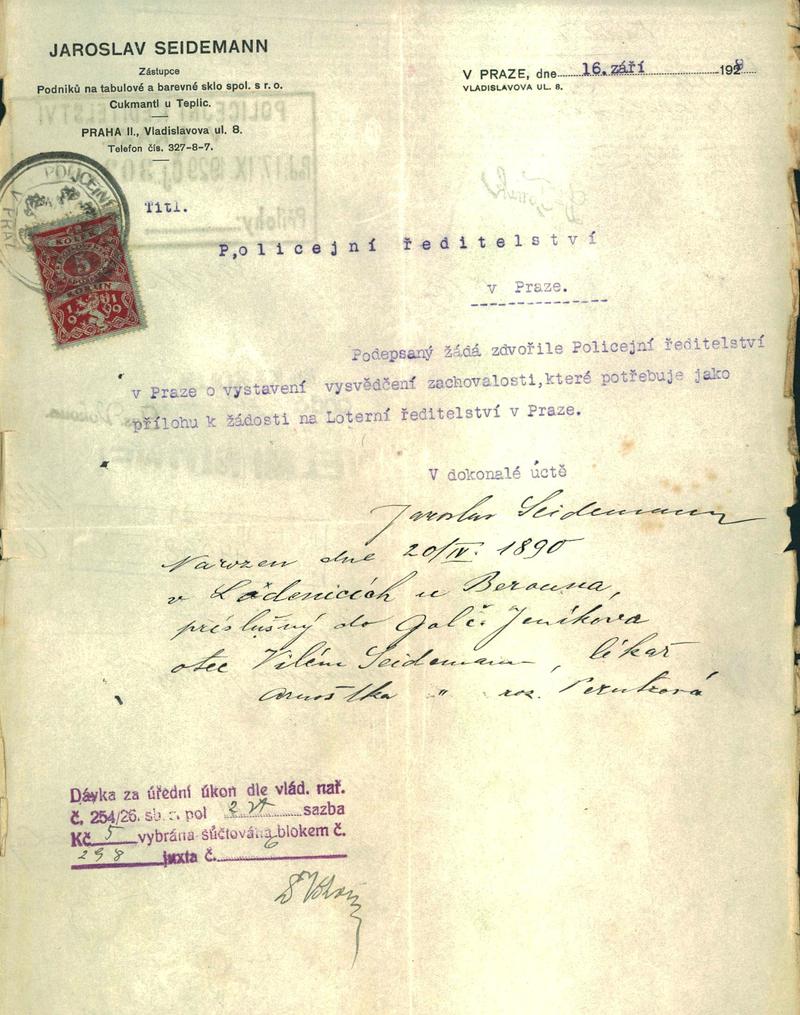 JAROSLAV SEIDEMANN
Zástupce
Podniků na tabulové a barevné sklo spol. s r. o.
Cukmantl u Teplic.
PRAHA II., Vladislavova ul. 8.
Telefon čís. 327-8-7.
V PRAZE, dne 16. září 1929
VLADISLAVOVA UL. 8.
POLICEJNÍ
V PRAZE
KOLEK
5
KORUN
1919
Titl.
P,olicejní ředitelství
v Praze.
Podepsaný žádá zdvořile Policejní ředitelství
v Praze o vystavení vysvědčení zachovalosti,které potřebuje jako
přílohu k žádosti na Loterní ředitelství v Praze.
V dokonalé úctě
Jaroslav Seidemann
Narozen dne 20/IV. 1890
v Loděnicích u Berouna,
příslušný do Golč. Jeníkova
otec Vilém Seidemann, lékař
Arnoštka " roz. Perutzová
Dávka za úřední úkon dle vlád. nař.
č. 254/26. sb. z. pol sazba
Kč 5 vybrána súčtována blokem č.
298 juxta č. 6